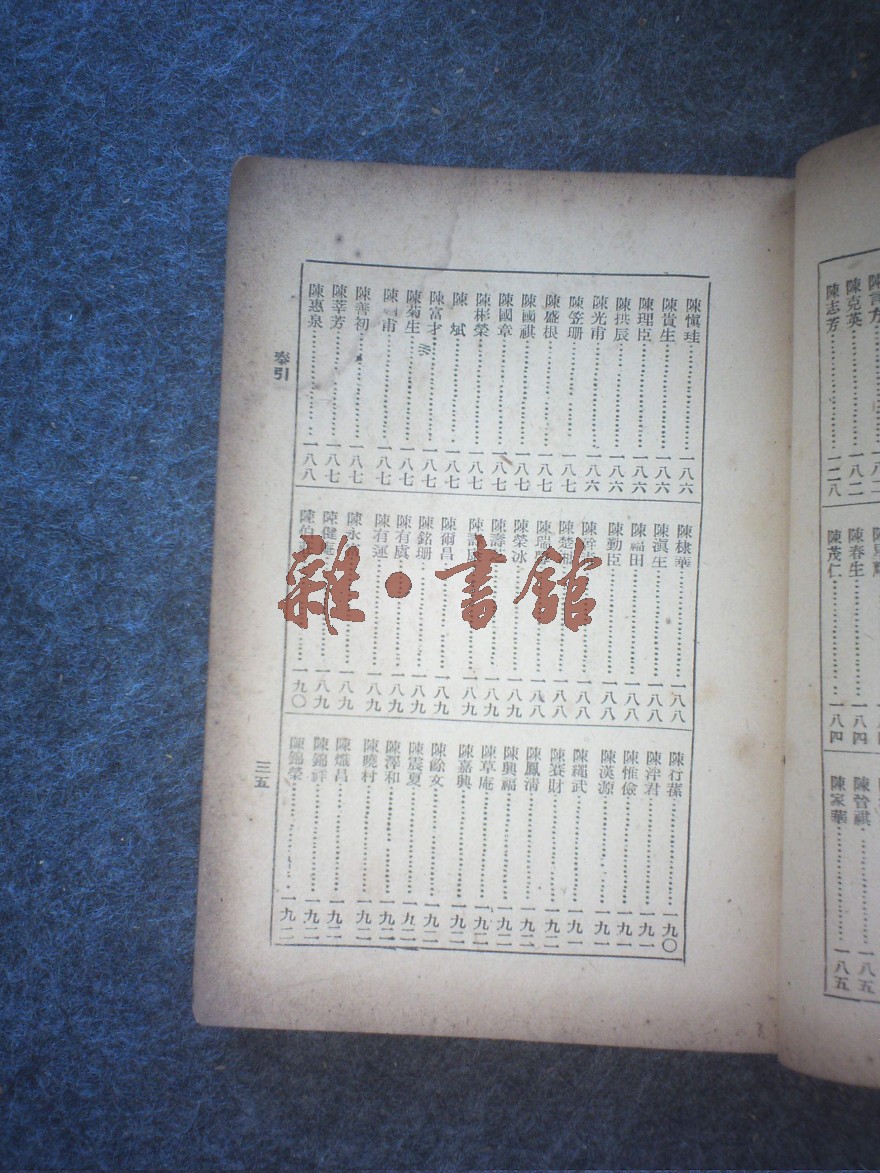 陳愼珪 一八六
陳貴生 一八六
陳理臣 一八六
陳拱辰 一八六
陳光甫 一八六
陳笠珊 一八七
陳盛根 一八七
陳國祺 一八七
陳國章 一八七
陳彬榮 一八七
陳斌 一八七
陳富才 一八七
陳菊生 一八七
陳一甫 一八七
陳善初 一八七
陳莘芳 一八七
陳惠泉 一八八
陳棣華 一八八
陳滇生 一八八
陳福田 一八八
陳勤臣 一八八
陳 一八八
陳楚 一八八
陳瑞 一八八
陳榮冰 一八九
陳壽 一八九
陳壽 一八九
陳爾昌 一八九
陳銘珊 一八九
陳有虞 一八九
陳有運 一八九
陳永 一八九
陳健 一八九
陳伯 一九〇
陳行蓀 一九〇
陳泮君 一九一
陳惟儉 一九一
陳漢源 一九一
陳繩武 一九一
陳賚財 一九二
陳鳳淸 一九二
陳興福 一九二
陳草庵 一九二
陳嘉興 一九二
陳餘文 一九二
陳震夏 一九二
陳澤和 一九二
陳曉村 一九二
陳熾昌 一九二
陳錦祥 一九二
陳錦榮 一九二
索引
三五
雜·書館
陳克英 一八二
陳志芳 一二八
陳春生 一八四
陳茂仁 一八四
陳曾祺 一八五
陳家華 一八五